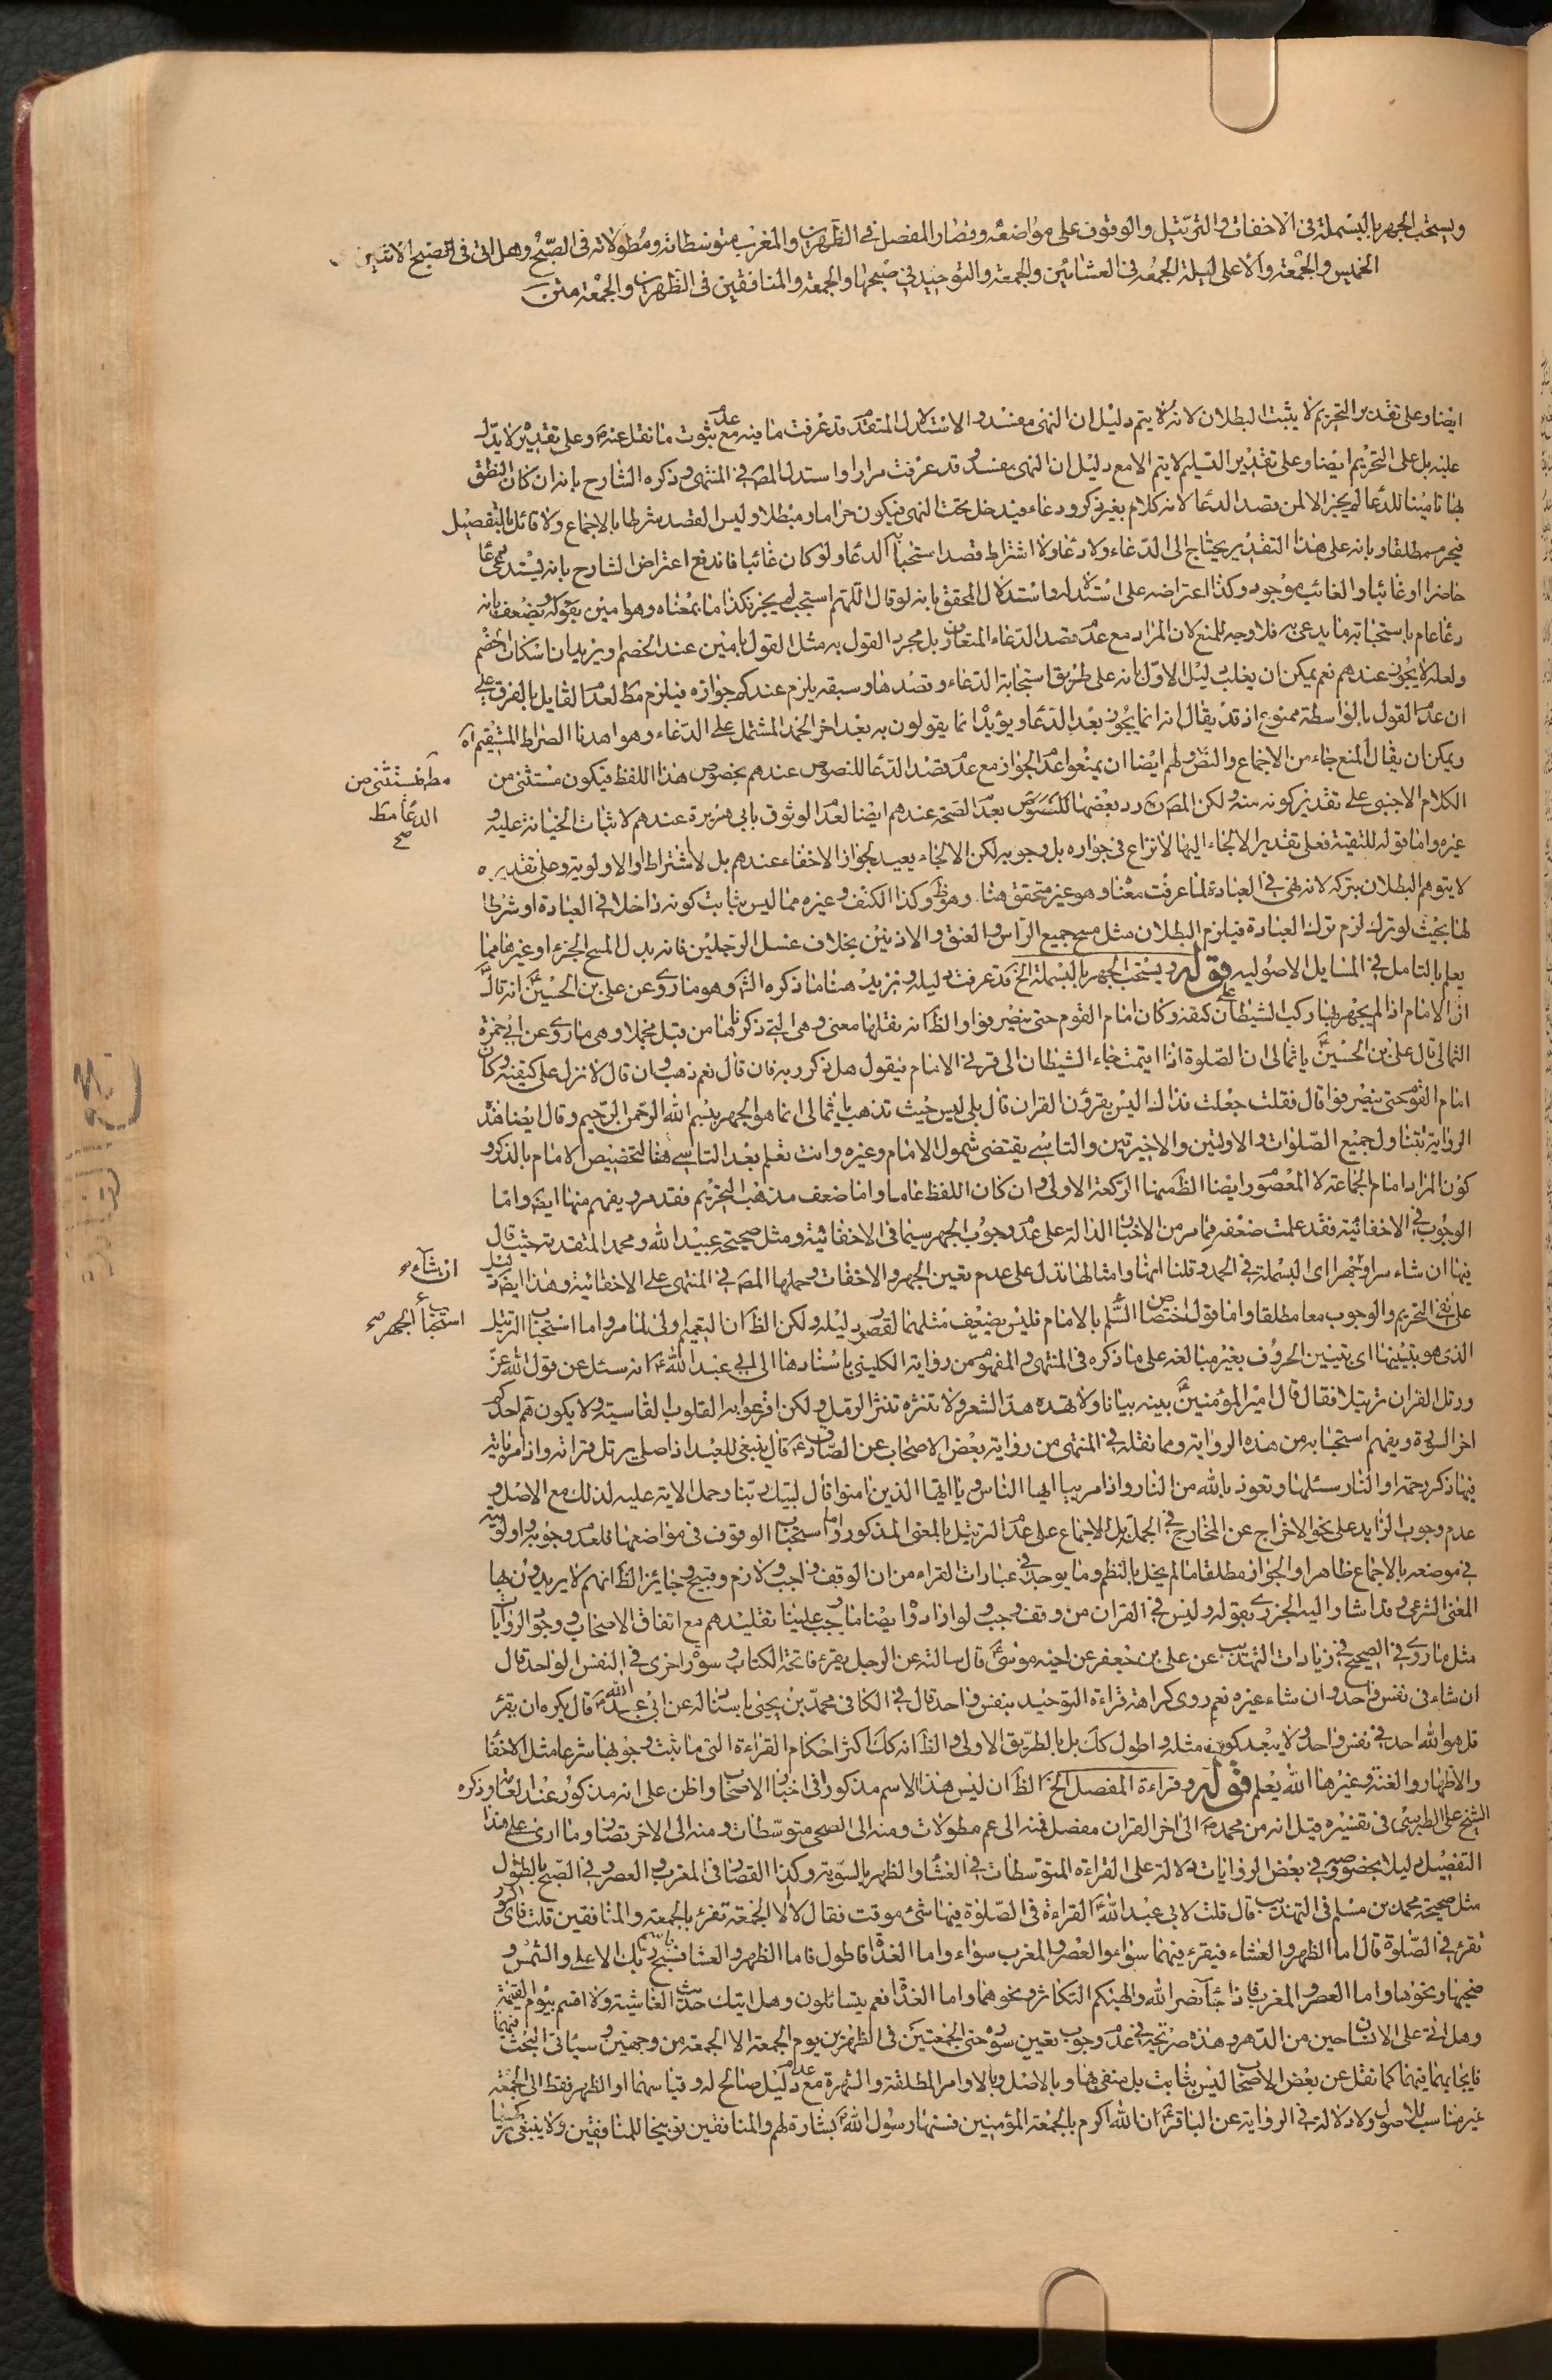 ويستحب الجهر بالبسملة في الاخفات والترتيل والوقوف على مواضعه وقصار المفصل في الظهرين والمغرب ومتوسطاته ومطولاته في الصبح وهل اتى في الصبح الاثنين و
الخميس والجمعة والاعلى ليلة الجمعة في العشائين والجمعة والتوحيد في صبحها والجمعة والمنافقين في الظهرين والجمعة متن
ايضا وعلى تقدير التحريم لا يثبت البطلان لانه لا يتم دليل ان النهى مفسد والاستدلال المتقدم قد عرفت ما فيه مع عدم ثبوت ما نقل عنه وعلى تقديره لا يدل
عليه بل على التحريم ايضا وعلى تقدير التسليم لا يتم الا مع دليل ان النهى مفسد وقد عرفت مرارا واستدل المص في المنتهى وذكره الشارح بانه ان كان النطق
بها تامينا للدعا لم يجز الا لمن قصد الدعا لانه كلام بغير ذكر ودعاء فيدخل تحت النهى فيكون حراما ومبطلا وليس القصد شرطا بالاجماع ولا قائل بالتفصيل
فيحرم مطلقا وبانه على هذا التقدير يحتاج الى الدعاء ولا دعا ولا اشتراط قصد استحباب الدعا ولو كان غائبا فاندفع اعتراض الشارح بانه يستدعى دعا
حاضرا او غائبا والغائب موجود وكذا اعتراضه على استدلاله واستدلال المحقق بانه لو قال اللهم استجب لم يجز فكذا ما بمعناه وهو امين بقوله ويضعف بانه
دعا عام باستجابة ما يدعى به فلا وجه للمنع لان المراد مع عدم قصد الدعاء المتعارف بل مجرد القول به مثل القول بامين عند الخصم ويزيدان اسكات الخصم
ولعله لا يجوز عندهم نعم يمكن ان يغلب دليل الاول بانه على طريق استجابة الدعاء وقصدها وسبقه يلزم عندك جوازه فيلزم مط لعدم القايل بالفرق على
ان عدم القول بالواسطة ممنوع اذ قد يقال انه انما يجوز بعد الدعا ويؤيد انما يقولون به بعد اخر الحمد المشتمل على الدعاء وهو اهدنا الصراط المستقيم اه
ويمكن ان يقال المنع جاء من الاجماع والنص ولهم ايضا ان يمنعوا عدم الجواز مع عدم قصد الدعا للنصوص عندهم بخصوص هذا اللفظ فيكون مستثنى من
مط فيستثنى من
الدعا مط
صح
الكلام الاجنبى على تقدير كونه منه ولكن المص ره رد بعضها للنصوص بعدم الصحة عندهم ايضا لعدم الوثوق بابى هريرة عندهم لاثبات الخيانة عليه و
غيره واما قوله للتقية فعلى تقدير الالجاء اليها لا نزاع في جوازه بل وجوبه لكن الالجاء بعيد لجواز الاخفاء عندهم بل لاشتراط او الاولوية وعلى تقديره
لا يتوهم البطلان بتركه لانه نهى في العبادة لما عرفت معناه وهو غير متحقق هنا وهو ظ وكذا الكتف وغيره مما ليس بثابت كونه داخلا في العبادة او شرطا
لها بحيث لو تركه لزم ترك العبادة فيلزم البطلان مثل مسح جميع الراس والعنق والاذنين بخلاف غسل الرجلين فانه بدل المسح الجزء او غيرها مما
يعلم بالتامل في المسايل الاصولية قوله ويستحب الجهر بالبسملة الخ قد عرفت دليله ونزيد هنا ما ذكره الش وهو ما روى عن على بن الحسين انه قال
ان الامام اذا لم يجهر بها ركب الشيطان على كتفه وكان امام القوم حتى ينصرفوا والظ انه نقلها معنى وهى التى ذكرناها من قبل مجملا وهى ما روى عن ابى حمزة
الثمالى قال على بن الحسين يا ثمالى ان الصلوة اذا اقيمت جاء الشيطان الى قرين الامام فيقول هل ذكر ربه فان قال نعم ذهب وان قال لا نزل على كتفيه وكان
امام القوم حتى ينصرفوا قال فقلت جعلت فداك اليس يقرؤن القران قال بلى ليس حيث تذهب يا ثمالى انما هو الجهر ببسم الله الرحمن الرحيم وقال ايضا هذه
الرواية تتناول جميع الصلوات والاولتين والاخيرتين والتاسى يقتضى شمول الامام وغيره وانت تعلم بعد التاسى هنا لتخصيص الامام بالذكر و
كون المراد امام الجماعة لا المعصوم وايضا الظ منها الركعة الاولى وان كان اللفظ عاما واما ضعف مذهب التحريم فقد مر ويفهم منها ايضا واما
الوجوب في الاخفاتية فقد علمت ضعفه مما مر من الاخبار الدالة على عدم وجوب الجهر سيما في الاخفاتية ومثل صحيحة عبيد الله ومحمد المتقدمة حيث قال
فيها ان شاء سرا وجهرا اى البسملة في الحمد وقلنا انها وامثالها تدل على عدم تعين الجهر والاخفات وحملها المص في المنتهى على الاخفاتية وهذا ايضا
ان شاء صح
على نفى التحريم والوجوب معا مطلقا واما قول اختصاص بالامام فليس بضعيف مثلهما لقصور دليله ولكن الظ ان التعميم اولى لما مر واما استحباب الترتيل
استحباب الجهر صح
الذى هو تبيينها اى تبيين الحروف بغير مبالغة على ما ذكره في المنتهى والمفهوم من رواية الكلينى باسنادها الى ابى عبد الله انه سئل عن قول الله عز
ورتل القران ترتيلا فقال قال امير المؤمنين بينه بيانا ولا تهذه هذ الشعر ولا تنثره نثر الرمل ولكن اقرعوا به القلوب القاسية ولا يكون هم احدكم
اخر السورة ويفهم استحبابه من هذه الرواية ومما نقله في المنتهى من رواية بعض الاصحاب عن الصادق قال ينبغى للعبد اذا صلى يرتل قراته واذا مر باية
فيها ذكر رحمة او النار سئلها وتعوذ بالله من النار واذا مر بيا ايها الناس ويا ايها الذين امنوا قال لبيك ربنا وحمل الاية عليه لذلك مع الاصل و
عدم وجوب الزايد على نحو الاخراج عن المخارج في الجملة بل الاجماع على عدم الترتيل بالمعنى المذكور واما استحباب الوقوف في مواضعها فلعدم وجوبه واولويته
في موضعه بالاجماع ظاهرا والجواز مطلقا ما لم يخل بالنظم وما يوجد في عبارات القراء من ان الوقف واجب ولازم وقبيح وجايز الظ انهم لا يريدون بها
المعنى الشرعى وقد اشار اليه الجزرى بقوله وليس في القران من وقف وجب ولو ارادوا ايضا ما يجب علينا تقليدهم مع اتفاق الاصحاب ووجود الروايات
مثل ما روى في الصحيح في زيادات التهذيب عن على بن جعفر عن اخيه موسى قال سالته عن الرجل يقرء فاتحة الكتاب وسورة اخرى في النفس الواحد قال
ان شاء في نفس واحد وان شاء غيره نعم روى كراهة قراءة التوحيد بنفس واحد قال في الكافى محمد بن يحيى باسناد له عن ابى عبد الله قال يكره ان يقرء
قل هو الله احد في نفس واحد ولا يبعد كون مثله واطول كك بل بالطريق الاولى والظ انه كك اكثر احكام القراءة التى ما ثبت وجوبها شرعا مثل الاخفا
والاظهار والغنة وغيرها الله يعلم قوله وقراءة المفصل الخ الظ ان ليس هذا الاسم مذكورا في اخبار الاصحاب واظن على انه مذكور عند العامة وذكره
الشيخ على الطبرسى في تفسيره قيل انه من محمد الى اخر القران مفصل فمنه الى عم مطولات ومنه الى الضحى متوسطات ومنه الى الاخر قصار وما ارى على هذا
التفصيل دليلا بخصوصه وفي بعض الروايات دلالة على القراءة المتوسطات في العشاء والظهر بالسوية وكذا القصار في المغرب والعصر وفي الصبح بالطول
مثل صحيحة محمد بن مسلم في التهذيب قال قلت لابى عبد الله القراءة في الصلوة فيها شئ موقت فقال لا الا الجمعة تقرء بالجمعة والمنافقين قلت فاى السور
تقرء في الصلوة قال اما الظهر والعشاء فيقرء فيهما سواء والعصر والمغرب سواء واما الغداة فاطول فاما الظهر والعشاء فسبح اسم ربك الاعلى والشمس و
ضحيها ونحوها واما العصر والمغرب فاذا جاء نصر الله والهيكم التكاثر ونحوهما واما الغداة فعم يتسائلون وهل اتيك حديث الغاشية ولا اقسم بيوم القيمة
وهل اتى على الانسان حين من الدهر وهذه صريحة في عدم وجوب تعيين سورة حتى الجمعتين في الظهرين يوم الجمعة الا الجمعة من وجهين وسيأتى البحث فيهما
فايجابهما فيهما كما نقل عن بعض الاصحاب ليس بثابت بل منفى هنا وبالاصل وبالاوامر المطلقة والشهرة مع عدم دليل صالح له وقياسهما او الظهر فقط الى الجمعة
غير مناسب للاصول ولا دلالة في الرواية عن الباقر ان الله اكرم بالجمعة المؤمنين فسنها رسول الله بشارة لهم والمنافقين توبيخا للمنافقين ولا ينبغى تركهما